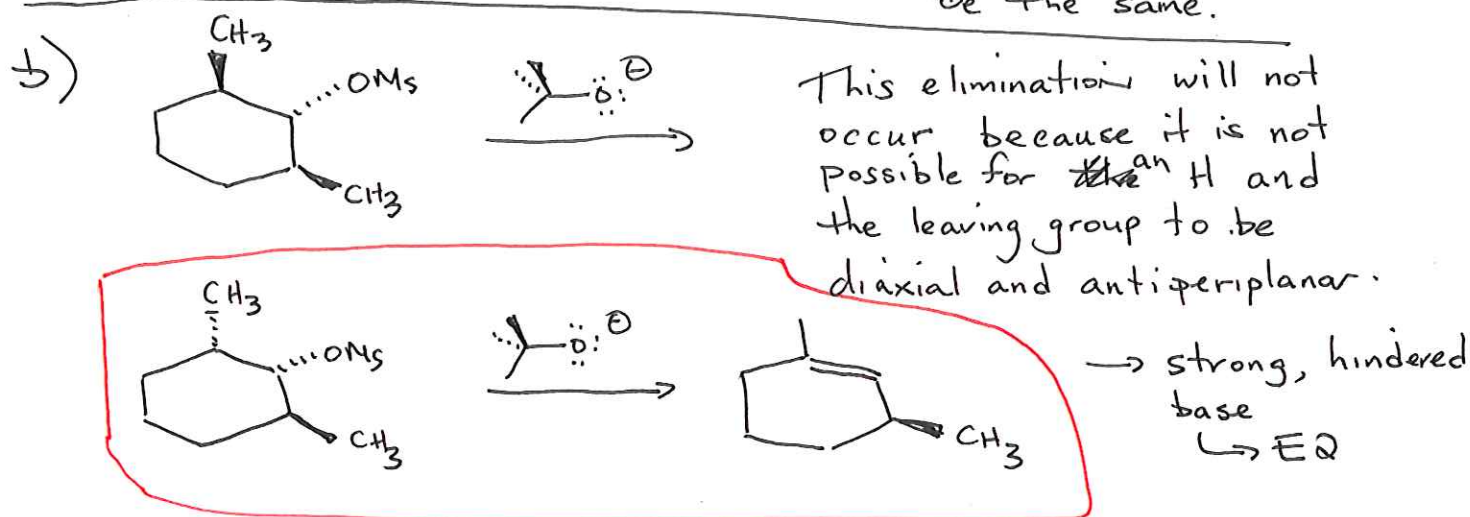 be the same.
b)
CH3
OMs
CH3
O: ⊖
This elimination will not
occur because it is not
possible for an H and
the leaving group to be
diaxial and antiperiplanar.
CH3
OMs
CH3
O: ⊖
CH3
→ strong, hindered
base
↳ E2